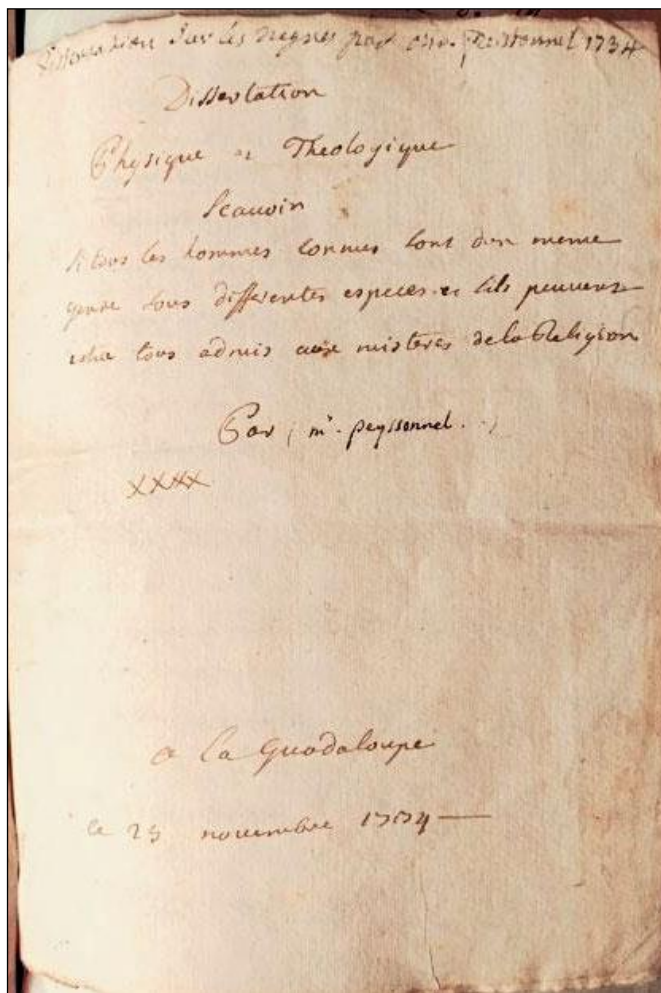 Dissertation sur les negres par Mr. Peissonnel 1734
Dissertation
Physique et Theologique
scauoir
si tous les hommes connus sont d'un meme
genre sous differentes especes et sils peuuent
estre tous admis aux misteres de la Religion
Par mr. peyssonnel.
XXXX
a la Guadaloupe
le 25 nouembre 1734